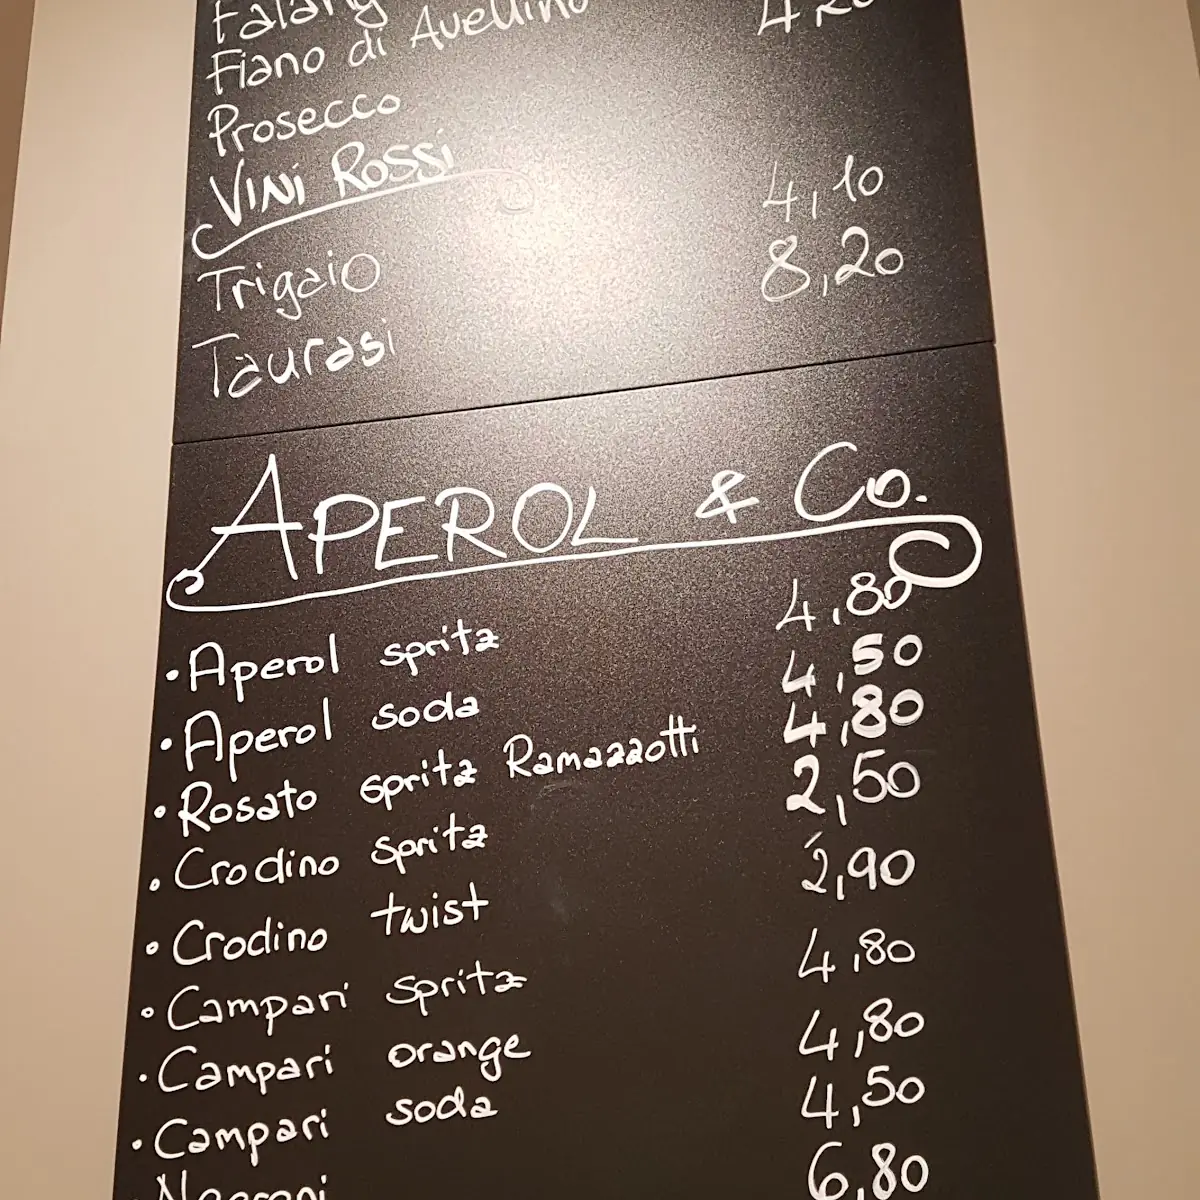 Falang
Fiano di Avellino 4,20
Prosecco
VINI ROSSI
Trigaio 4,10
Taurasi 8,20
APEROL & Co.
• Aperol spritz 4,80
• Aperol soda 4,50
• Rosato spritz Ramazzotti 4,80
• Crodino spritz 2,50
• Crodino twist 2,90
• Campari spritz 4,80
• Campari orange 4,80
• Campari soda 4,50
Negroni 6,80